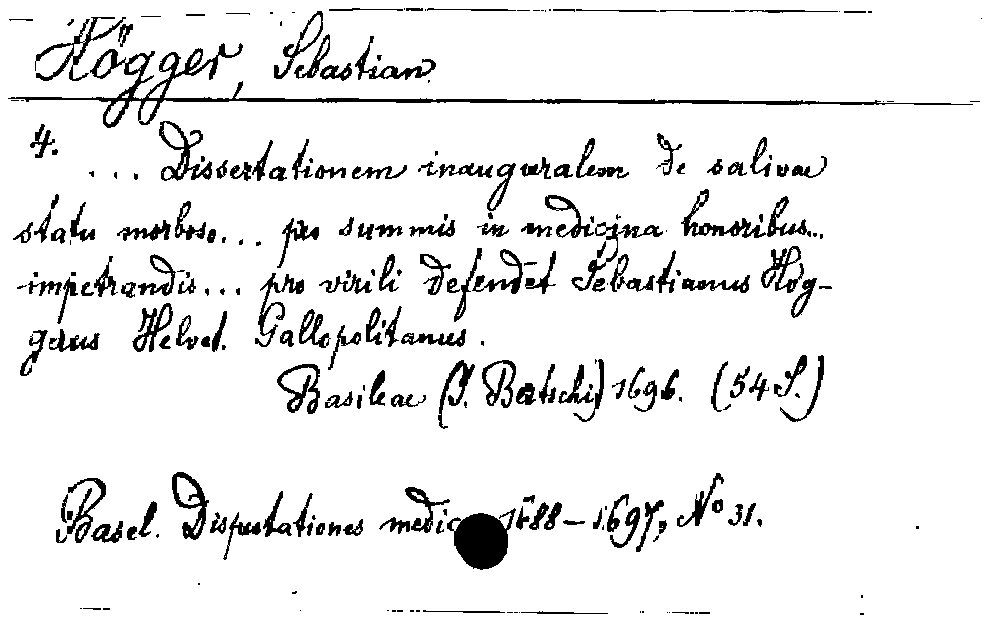 Högger, Sebastian
4.
... Dissertationem inauguralem de salivae
statu morboso... pro summis in medicina honoribus...
impetrandis... pro virili defendet Sebastianus Hög-
gerus Helvet. Gallopolitanus.
Basileae (J. Bertschi) 1696. (54 S.)
Basel. Disputationes medic 1688–1697, No 31.